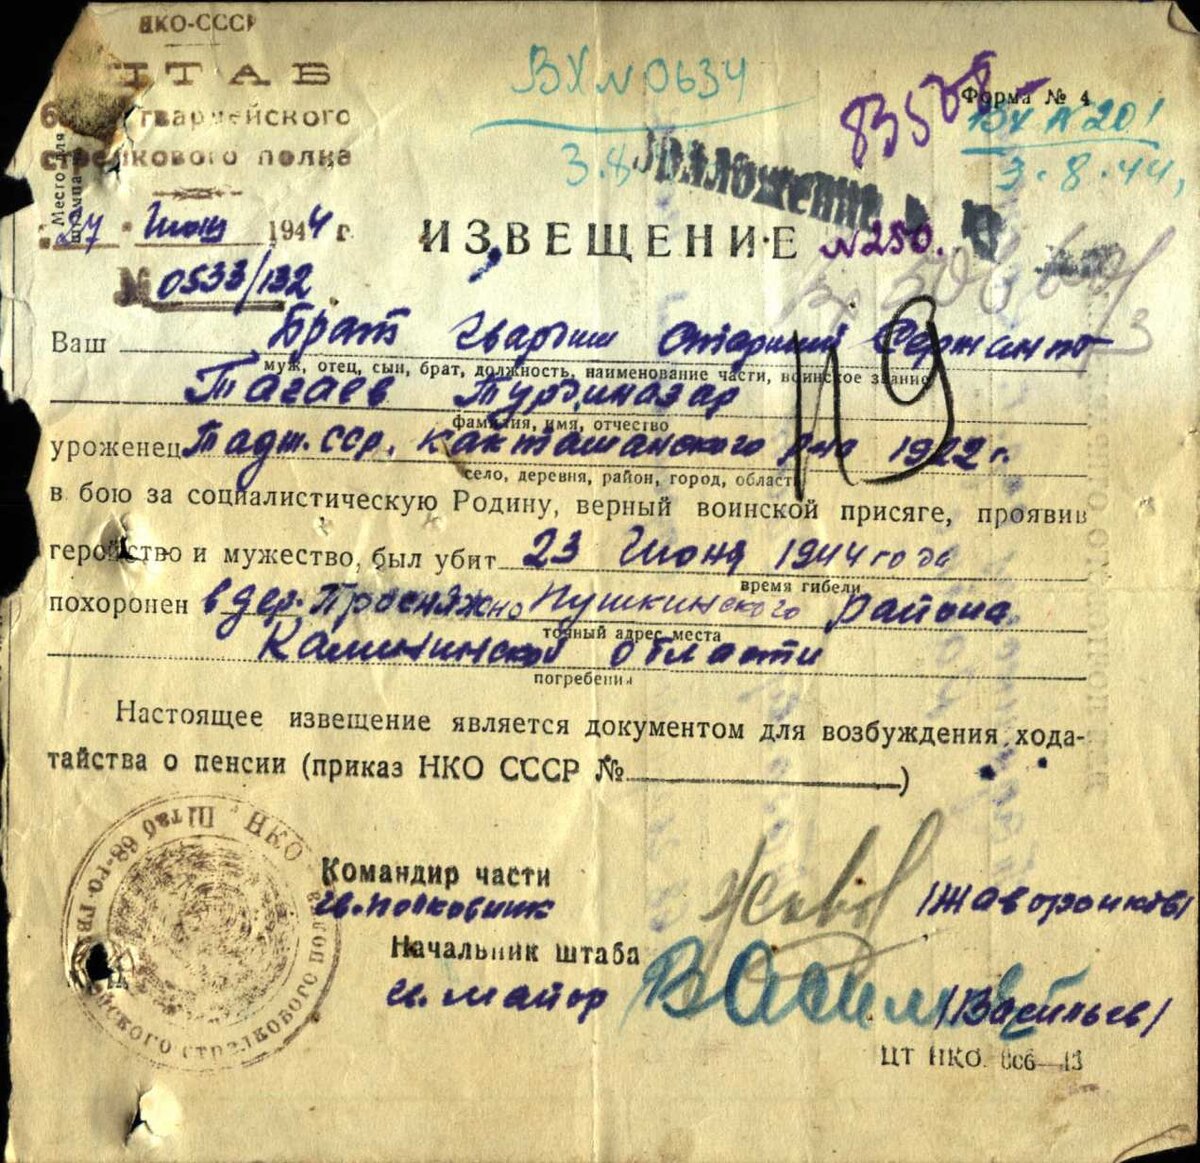 НКО-СССР
ШТАБ
гвардейского
стрелкового полка
Место для
штампа
27 Июня 1944 г.
№ 0533/132
ВХ N 0634
3.8
83508
Форма № 4
ВХ N 201
3.8.44,
Приложение к
N 250.
ИЗВЕЩЕНИЕ
N9
Ваш Брат Гвардии Старший Сержант
муж, отец, сын, брат, должность, наименование части, воинское звание
Тагаев Турдиназар
фамилия, имя, отчество
уроженец Тадж. ССР, Кокташского р-на 1922 г.
село, деревня, район, город, область
в бою за социалистическую Родину, верный воинской присяге, проявив
геройство и мужество, был убит 23 Июня 1944 года
время гибели
похоронен в дер. Просняжно Пушкинского района
точный адрес места
Калининской области
погребения
Настоящее извещение является документом для возбуждения хода-
тайства о пенсии (приказ НКО СССР № )
НКО Штаб 68-го гвардейского стрелкового полка
Командир части
гв. полковник /Жаворонков/
Начальник штаба
гв. майор Васильев /Васильев/
ЦТ НКО. 866—43